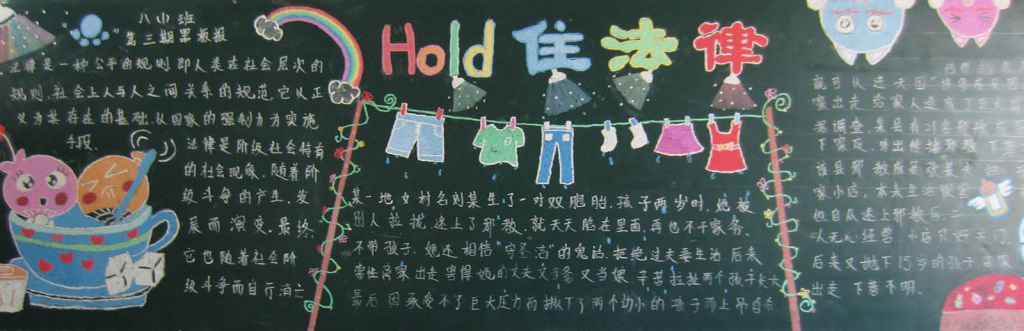 八(4)班
第三期黑板报
法律是一种公平的规则即人类在社会层次的
规则,社会上人与人之间关系的规范,它以正
义为其存在的基础,以国家的强制力为实施
手段。
法律是阶级社会特有
的社会现象,随着阶
级斗争的产生、发
展而演变,最终
它也随着社会阶
级斗争而自行消亡
Hold 住 法 律
某一地女村名刘某生了一对双胞胎,孩子两岁时,她被
别人拉拢,迷上了邪教,就天天陷在里面,再也不干家务、
不带孩子,她还相信"守圣洁"的鬼话,拒绝过夫妻生活,后来
索性离家出走,害得她的丈夫又当爹又当娘,辛苦拉扯两个孩子长大
最后因承受不了巨大压力而撇下了两个幼小的孩子而上吊自杀
就可以进天国
家出走给家人造成了巨大
据调查某县有21名邪教
下家庭,外出传播邪教,下落
该县邪教
家小店,本来生活
但自从迷上邪教后,
人无心经营,小店只好关门
后来又抛下15岁的孩子离家
出走,下落不明。